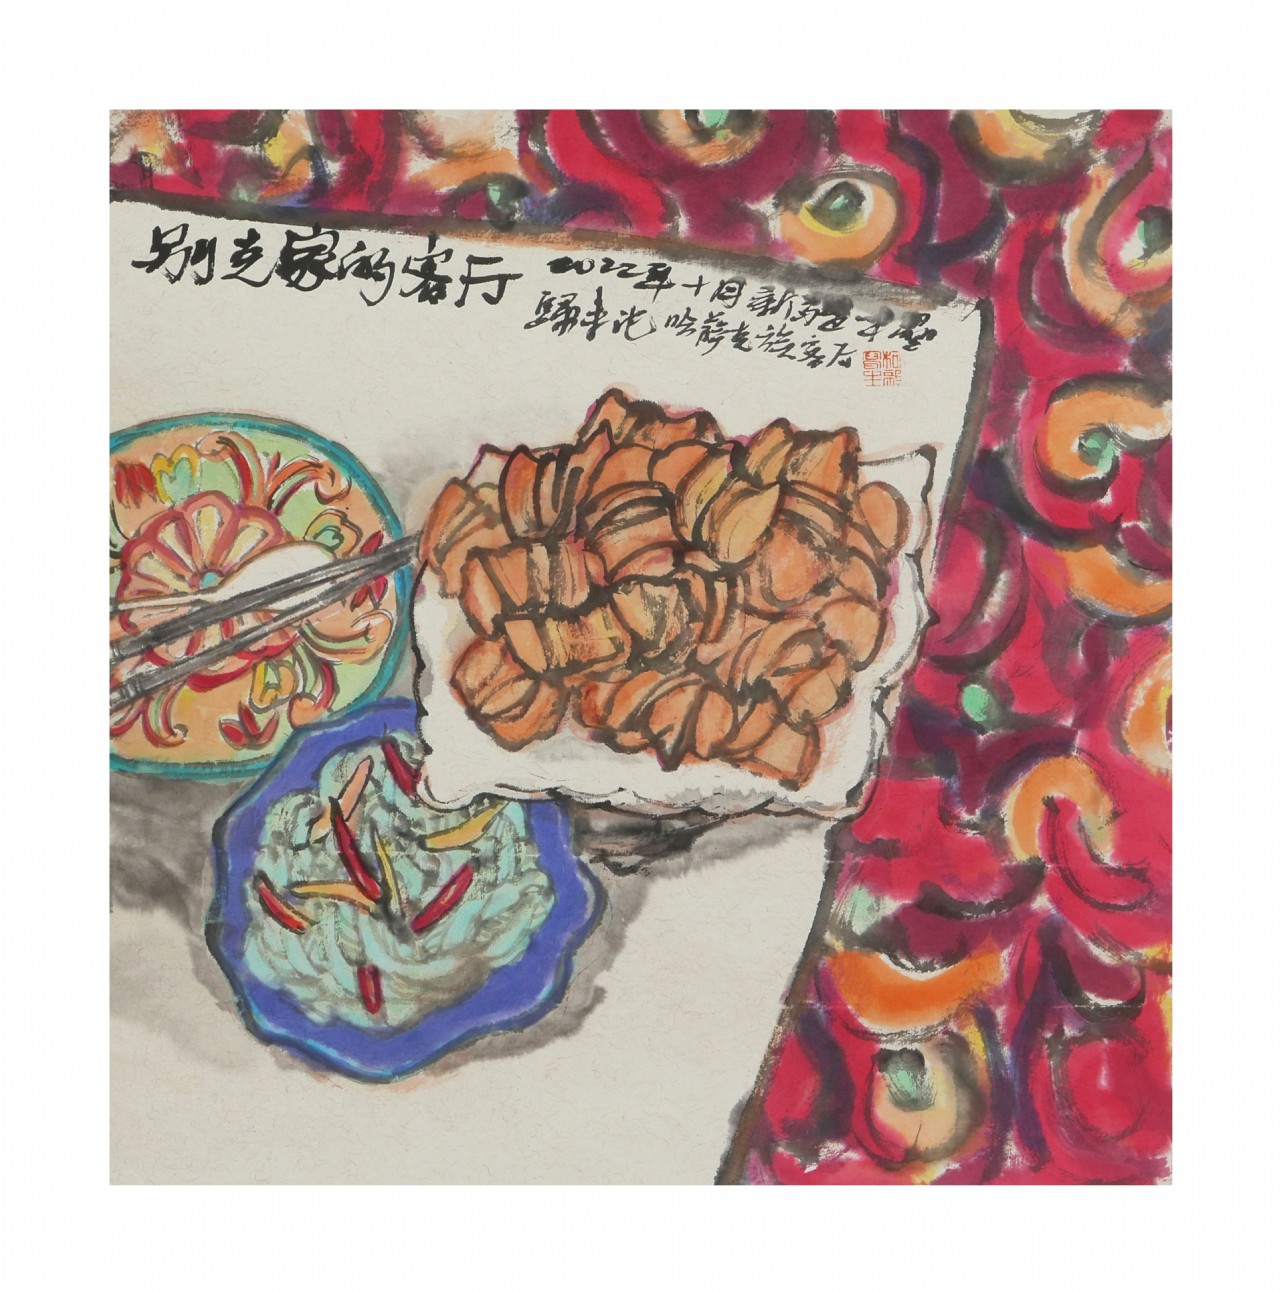 别克家的客厅
2022年十月新疆写生
归来记哈萨克族客厅